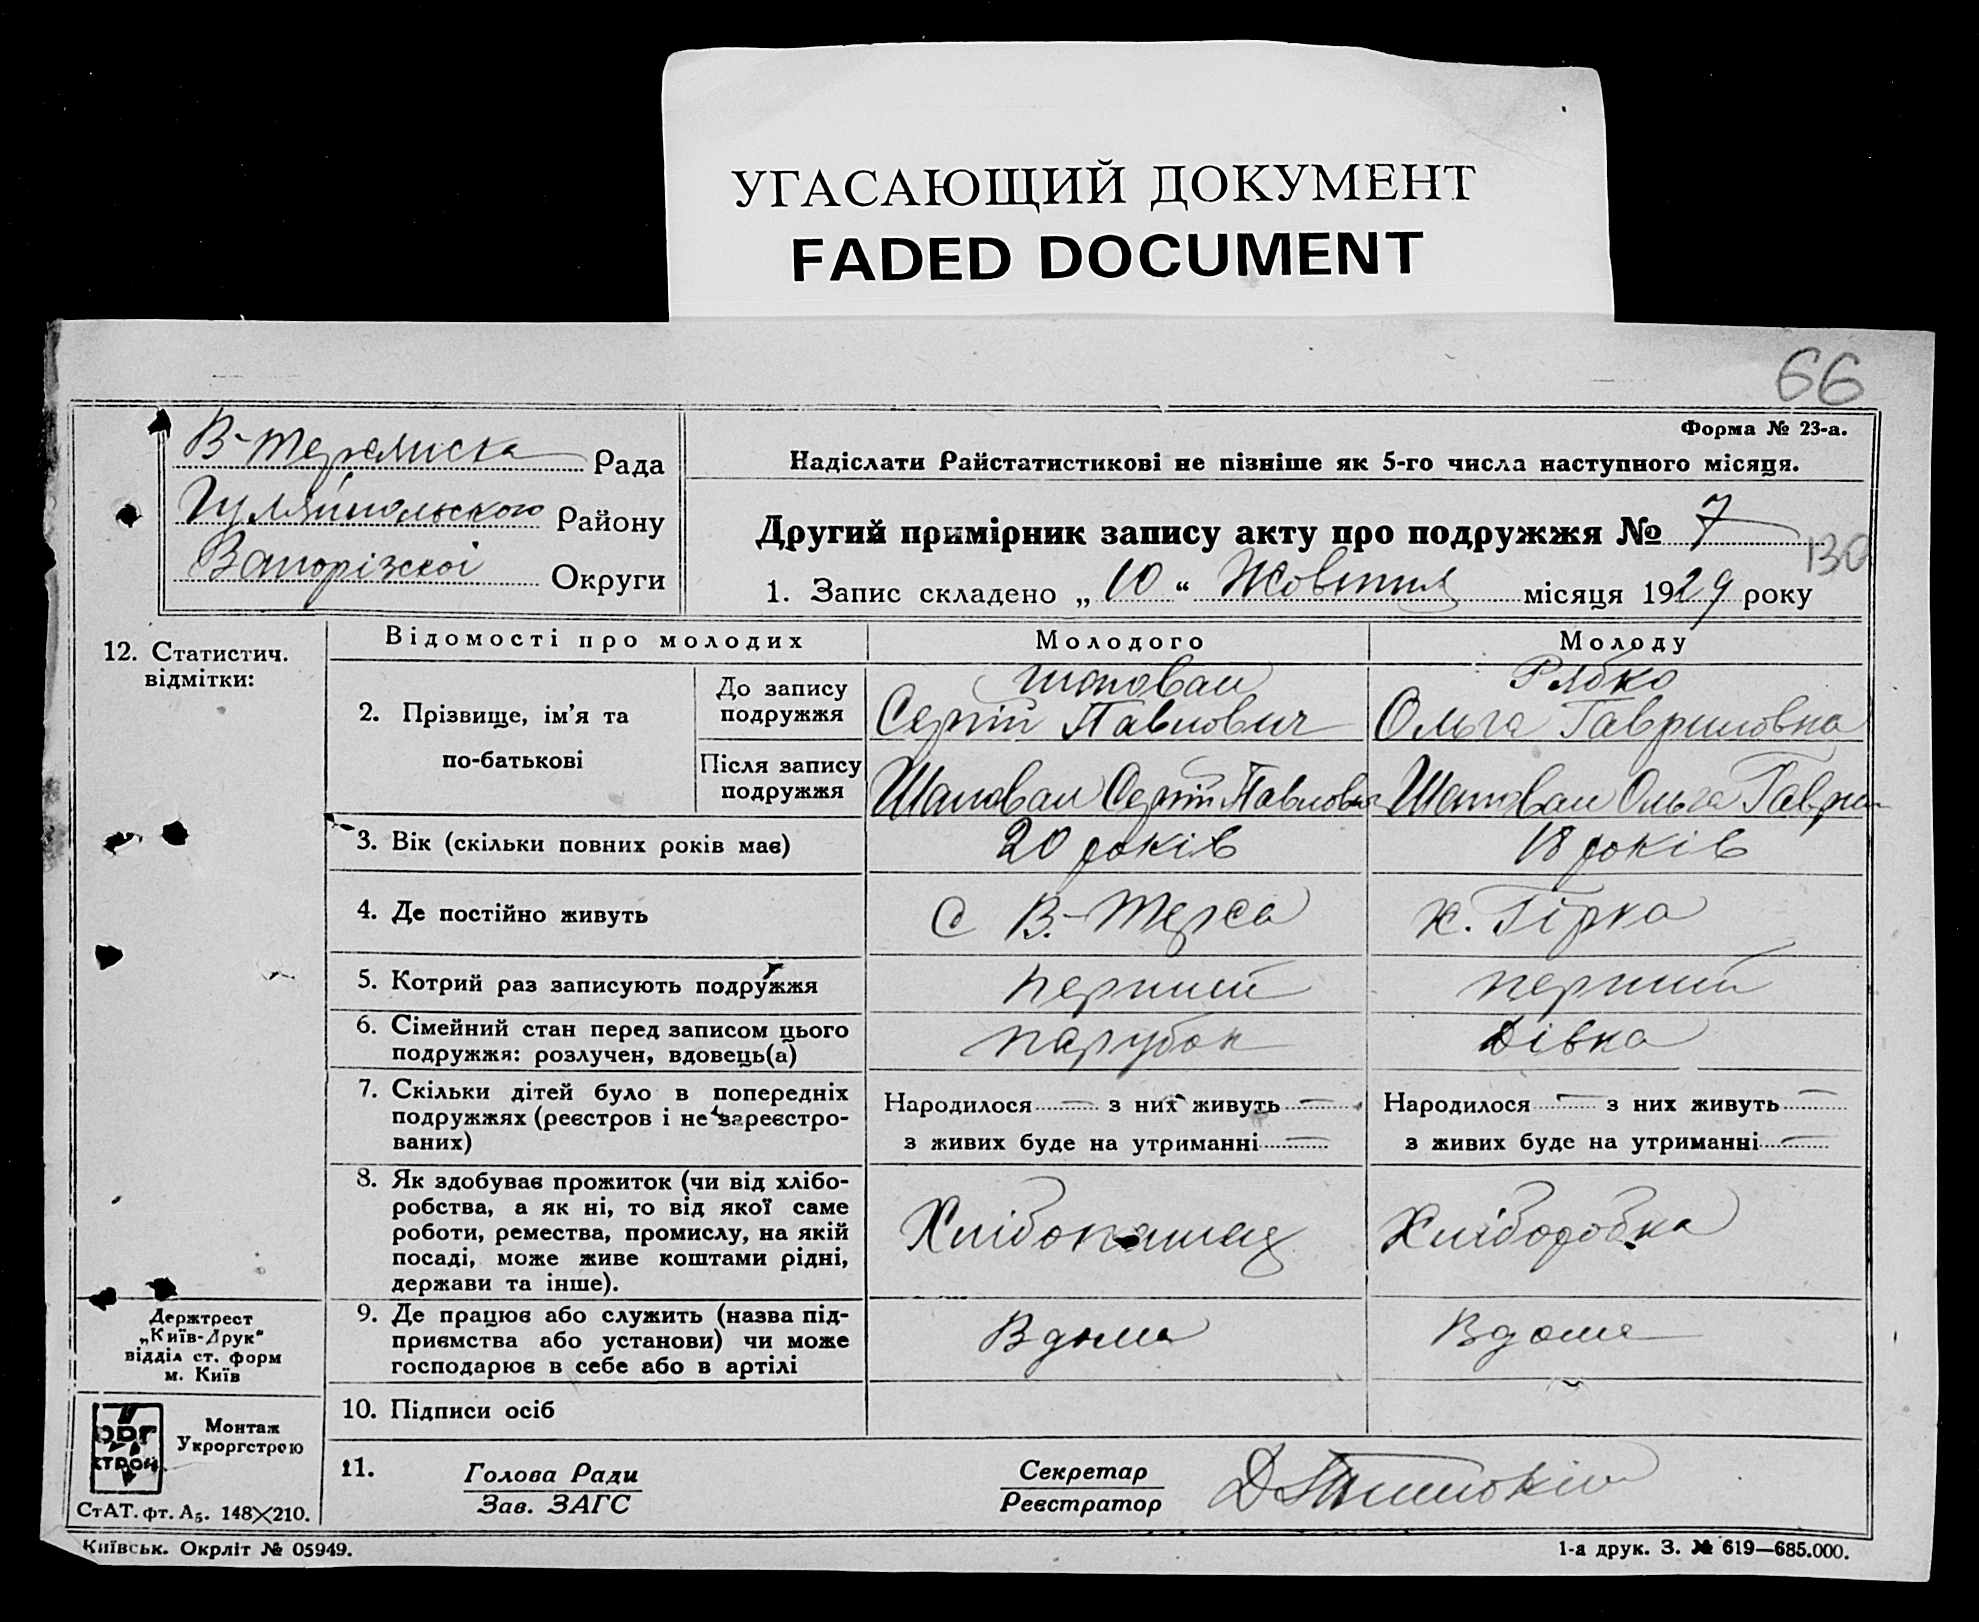 УГАСАЮЩИЙ ДОКУМЕНТ
FADED DOCUMENT
66
Форма № 23-а.
В-Терсянська Рада
Гуляйпольського Району
Запорізскоі Округи
Надіслати Райстатистикові не пізніше як 5-го числа наступного місяця.
Другий примірник запису акту про подружжя № 7
130
1. Запис складено „ 10 “ Жовтня місяця 1929 року
12. Статистич.
відмітки:
Відомості про молодих
Молодого
Молоду
2. Прізвище, ім’я та
по-батькові
До запису
подружжя
Шаповал
Сергій Павлович
Рябко
Ольга Гавриловна
Після запису
подружжя
Шаповал Сергій Павлович
Шаповал Ольга Гаврил
3. Вік (скільки повних років має)
20 років
18 років
4. Де постійно живуть
С В.-Терса
х. Гірка
5. Котрий раз записують подружжя
перший
перший
6. Сімейний стан перед записом цього
подружжя: розлучен, вдовець(а)
парубок
Дівка
7. Скільки дітей було в попередніх
подружжях (реєстров і не зареєстро-
ваних)
Народилося — з них живуть —
з живих буде на утриманні —
Народилося — з них живуть —
з живих буде на утриманні —
8. Як здобуває прожиток (чи від хлібо-
робства, а як ні, то від якої саме
роботи, ремества, промислу, на якій
посаді, може живе коштами рідні,
держави та інше).
Хлібопашец
Хліборобка
9. Де працює або служить (назва під-
приємства або установи) чи може
господарює в себе або в артілі
Вдома
Вдома
10. Підписи осіб
11.
Голова Ради
Зав. ЗАГС
Секретар
Реєстратор
Держтрест
„Київ-Друк“
відділ ст. форм
м. Київ
ОРГ
СТРОЙ
Монтаж
Укроргстрою
СтАТ. фт. А5. 148×210.
Київськ. Окрліт № 05949.
1-а друк. З. № 619—685.000.